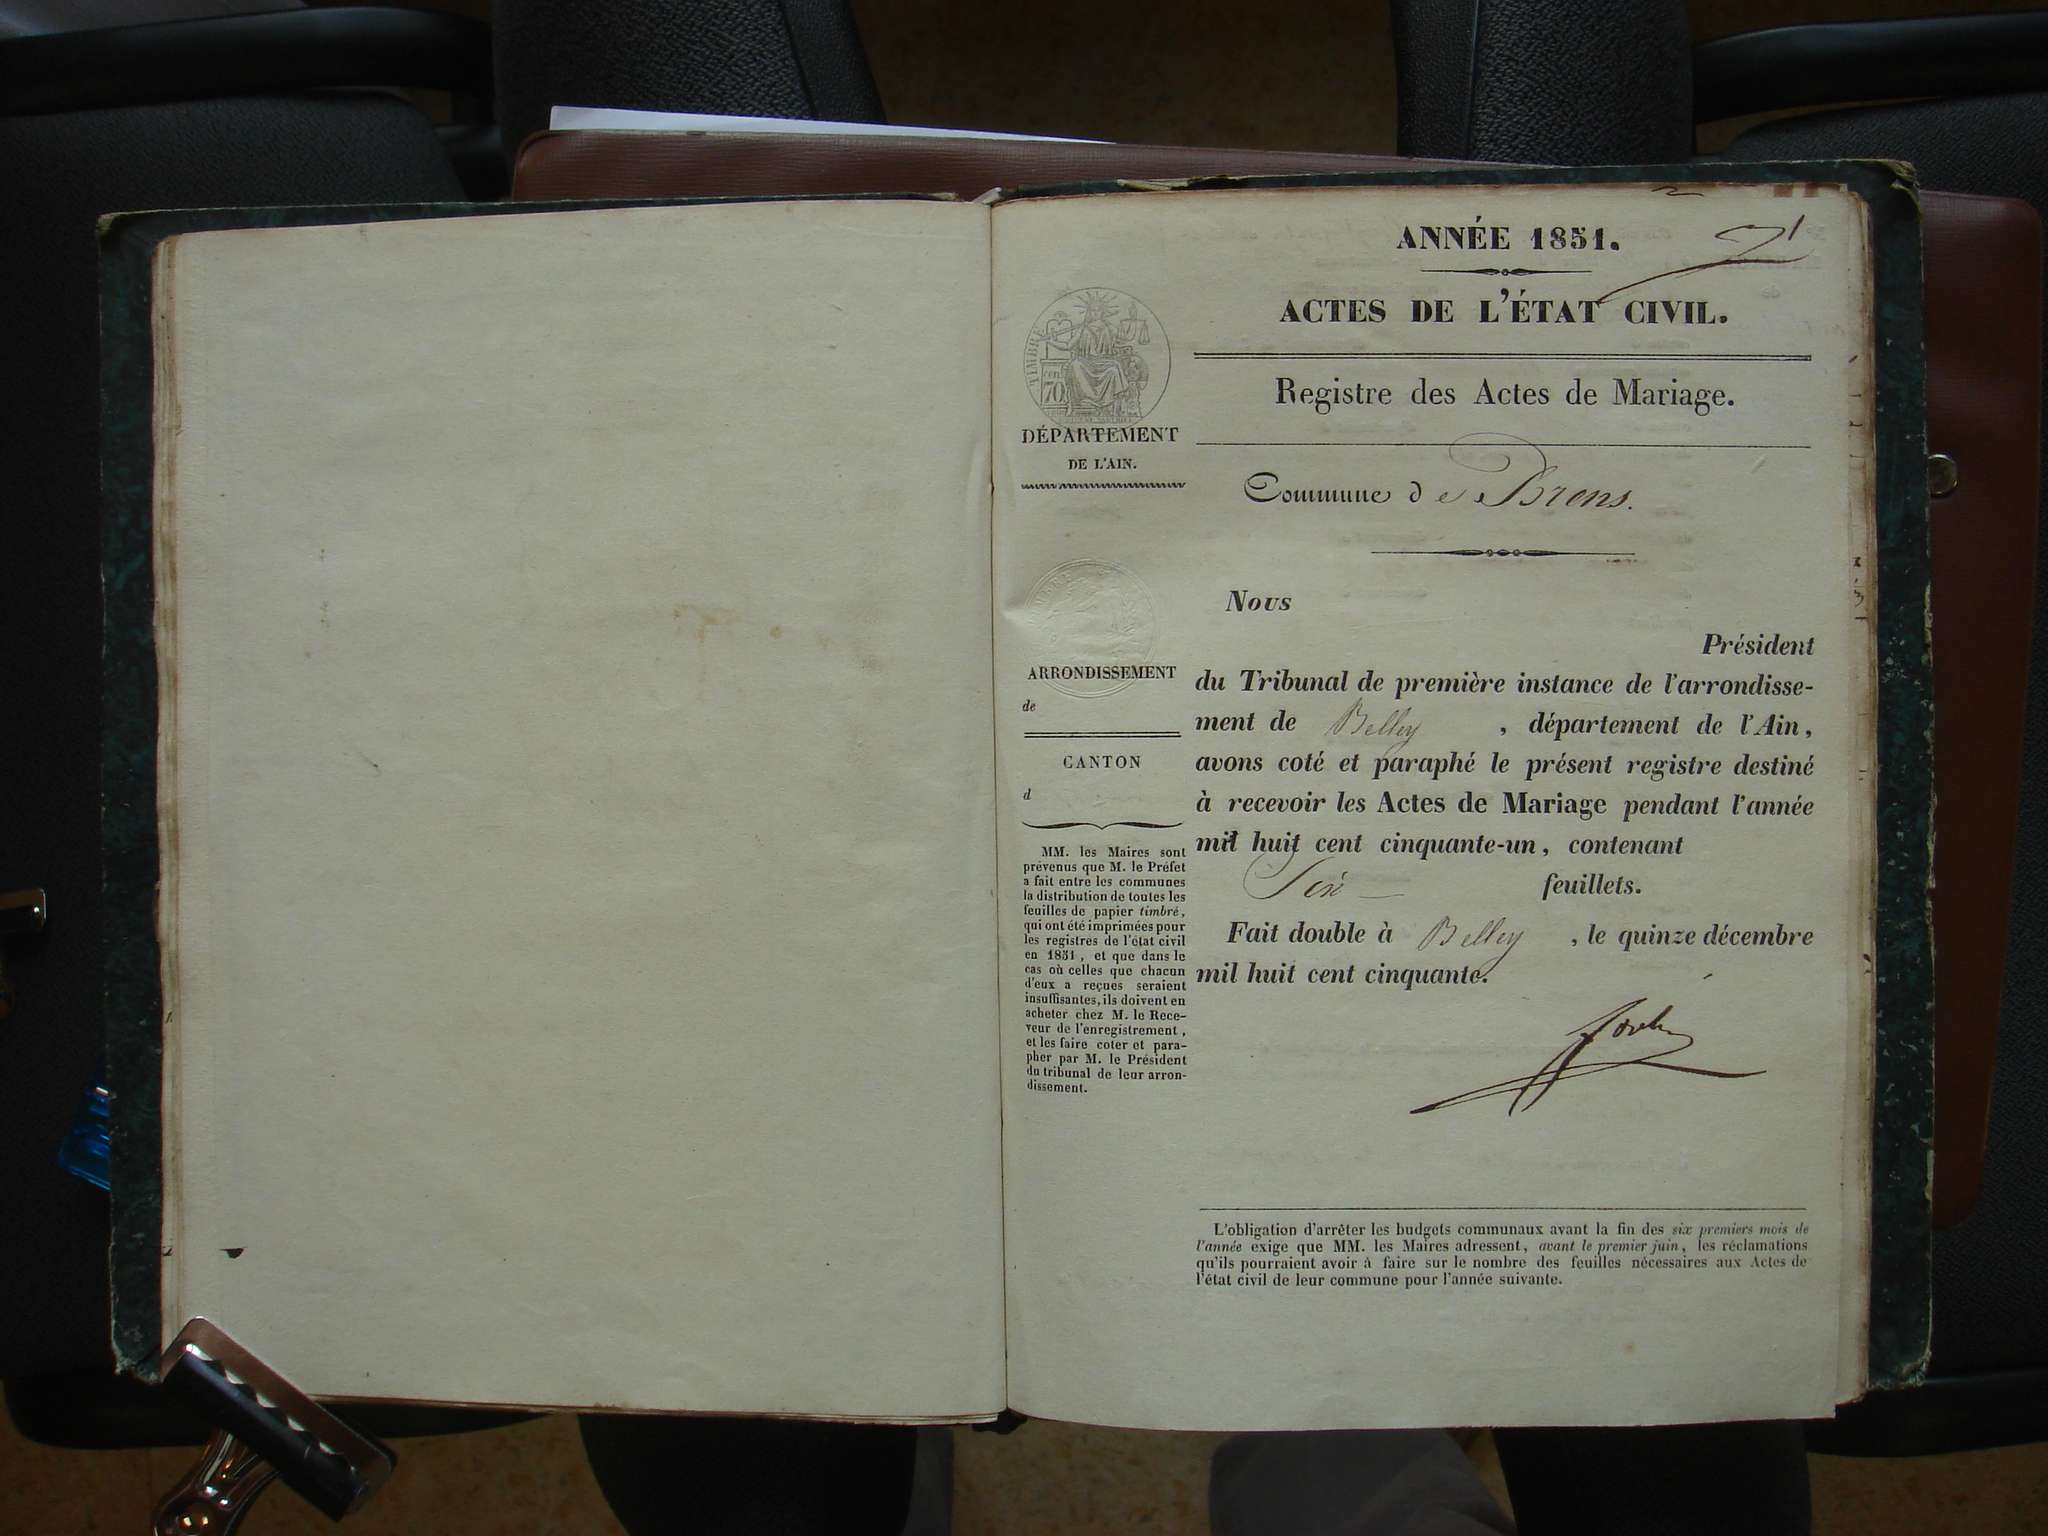 ANNÉE 1851.
1
ACTES DE L'ÉTAT CIVIL.
Registre des Actes de Mariage.
TIMBRE
70
DÉPARTEMENT
DE L'AIN.
Commune de Brens.
ARRONDISSEMENT
de
CANTON
d
MM. les Maires sont
prévenus que M. le Préfet
a fait entre les communes
la distribution de toutes les
feuilles de papier timbré,
qui ont été imprimées pour
les registres de l'état civil
en 1851, et que dans le
cas où celles que chacun
d'eux a reçues seraient
insuffisantes, ils doivent en
acheter chez M. le Rece-
veur de l'enregistrement,
et les faire coter et para-
pher par M. le Président
du tribunal de leur arron-
dissement.
Nous
Président
du Tribunal de première instance de l'arrondisse-
ment de Belley, département de l'Ain,
avons coté et paraphé le présent registre destiné
à recevoir les Actes de Mariage pendant l'année
mil huit cent cinquante-un, contenant
Six feuillets.
Fait double à Belley, le quinze décembre
mil huit cent cinquante.
L'obligation d'arrêter les budgets communaux avant la fin des six premiers mois de
l'année exige que MM. les Maires adressent, avant le premier juin, les réclamations
qu'ils pourraient avoir à faire sur le nombre des feuilles nécessaires aux Actes de
l'état civil de leur commune pour l'année suivante.